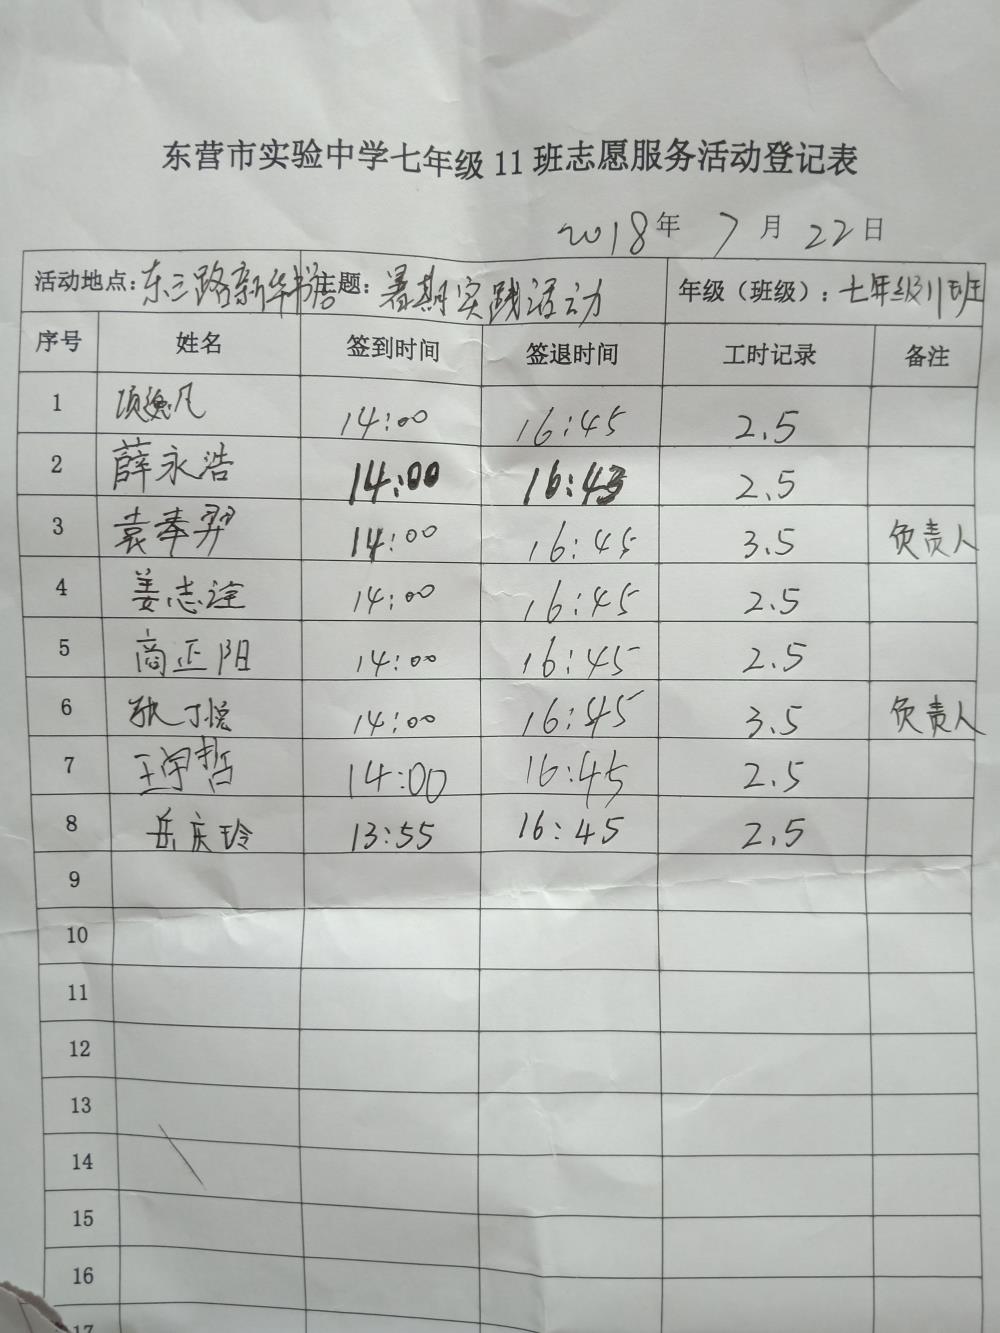 东营市实验中学七年级11班志愿服务活动登记表
2018年 7月 22日
活动地点:东三路新华书店 主题:暑期实践活动 年级（班级）:七年级11班
序号 姓名 签到时间 签退时间 工时记录 备注
1 项逸凡 14:00 16:45 2.5
2 薛永浩 14:00 16:45 2.5
3 袁奉羿 14:00 16:45 3.5 负责人
4 姜志 14:00 16:45 2.5
5 商正阳 14:00 16:45 2.5
6 14:00 16:45 3.5 负责人
7 王宇哲 14:00 16:45 2.5
8 岳庆玲 13:55 16:45 2.5
9
10
11
12
13
14
15
16
17